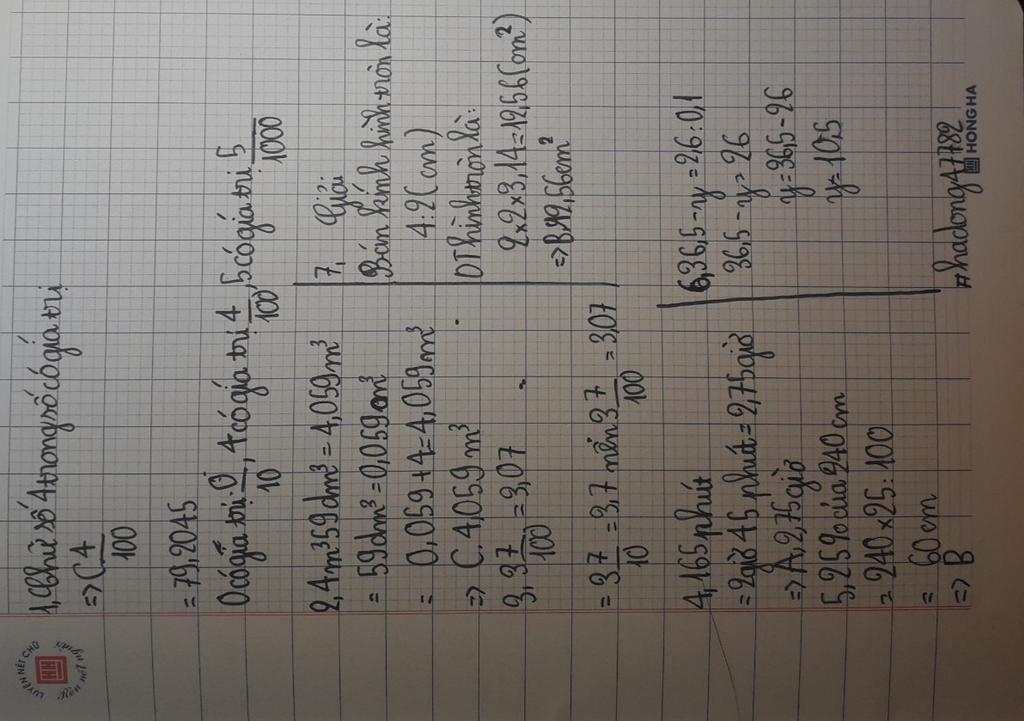 LUYỆN NÉT CHỮ
Rèn nết người
1, Chữ số 4 trong số có giá trị
=> C 4/100
= 79,2045
0 có giá trị: 0/10, 4 có giá trị 4/100, 5 có giá trị 5/1000
2, 4m³59dm³ = 4,059m³
= 59dm³ = 0,059m³
= 0,059 + 4 = 4,059m³
=> C 4,059m³
3, 3 7/100 = 3,07
= 37/10 = 3,7 nên 3 7/100 = 3,07
4, 165 phút
= 2 giờ 45 phút = 2,75 giờ
=> A, 2,75 giờ
5, 25% của 240cm
= 240 x 25 : 100
= 60cm
=> B
7, Giải
Bán kính hình tròn là:
4:2(cm)
DT hình tròn là:
2 x 2 x 3,14 = 12,56(cm²)
=> B.12,56cm²
6, 36,5 - y = 2,6 : 0,1
36,5 - y = 26
y = 36,5 - 26
y = 10,5
#hadong47782
HONG HA